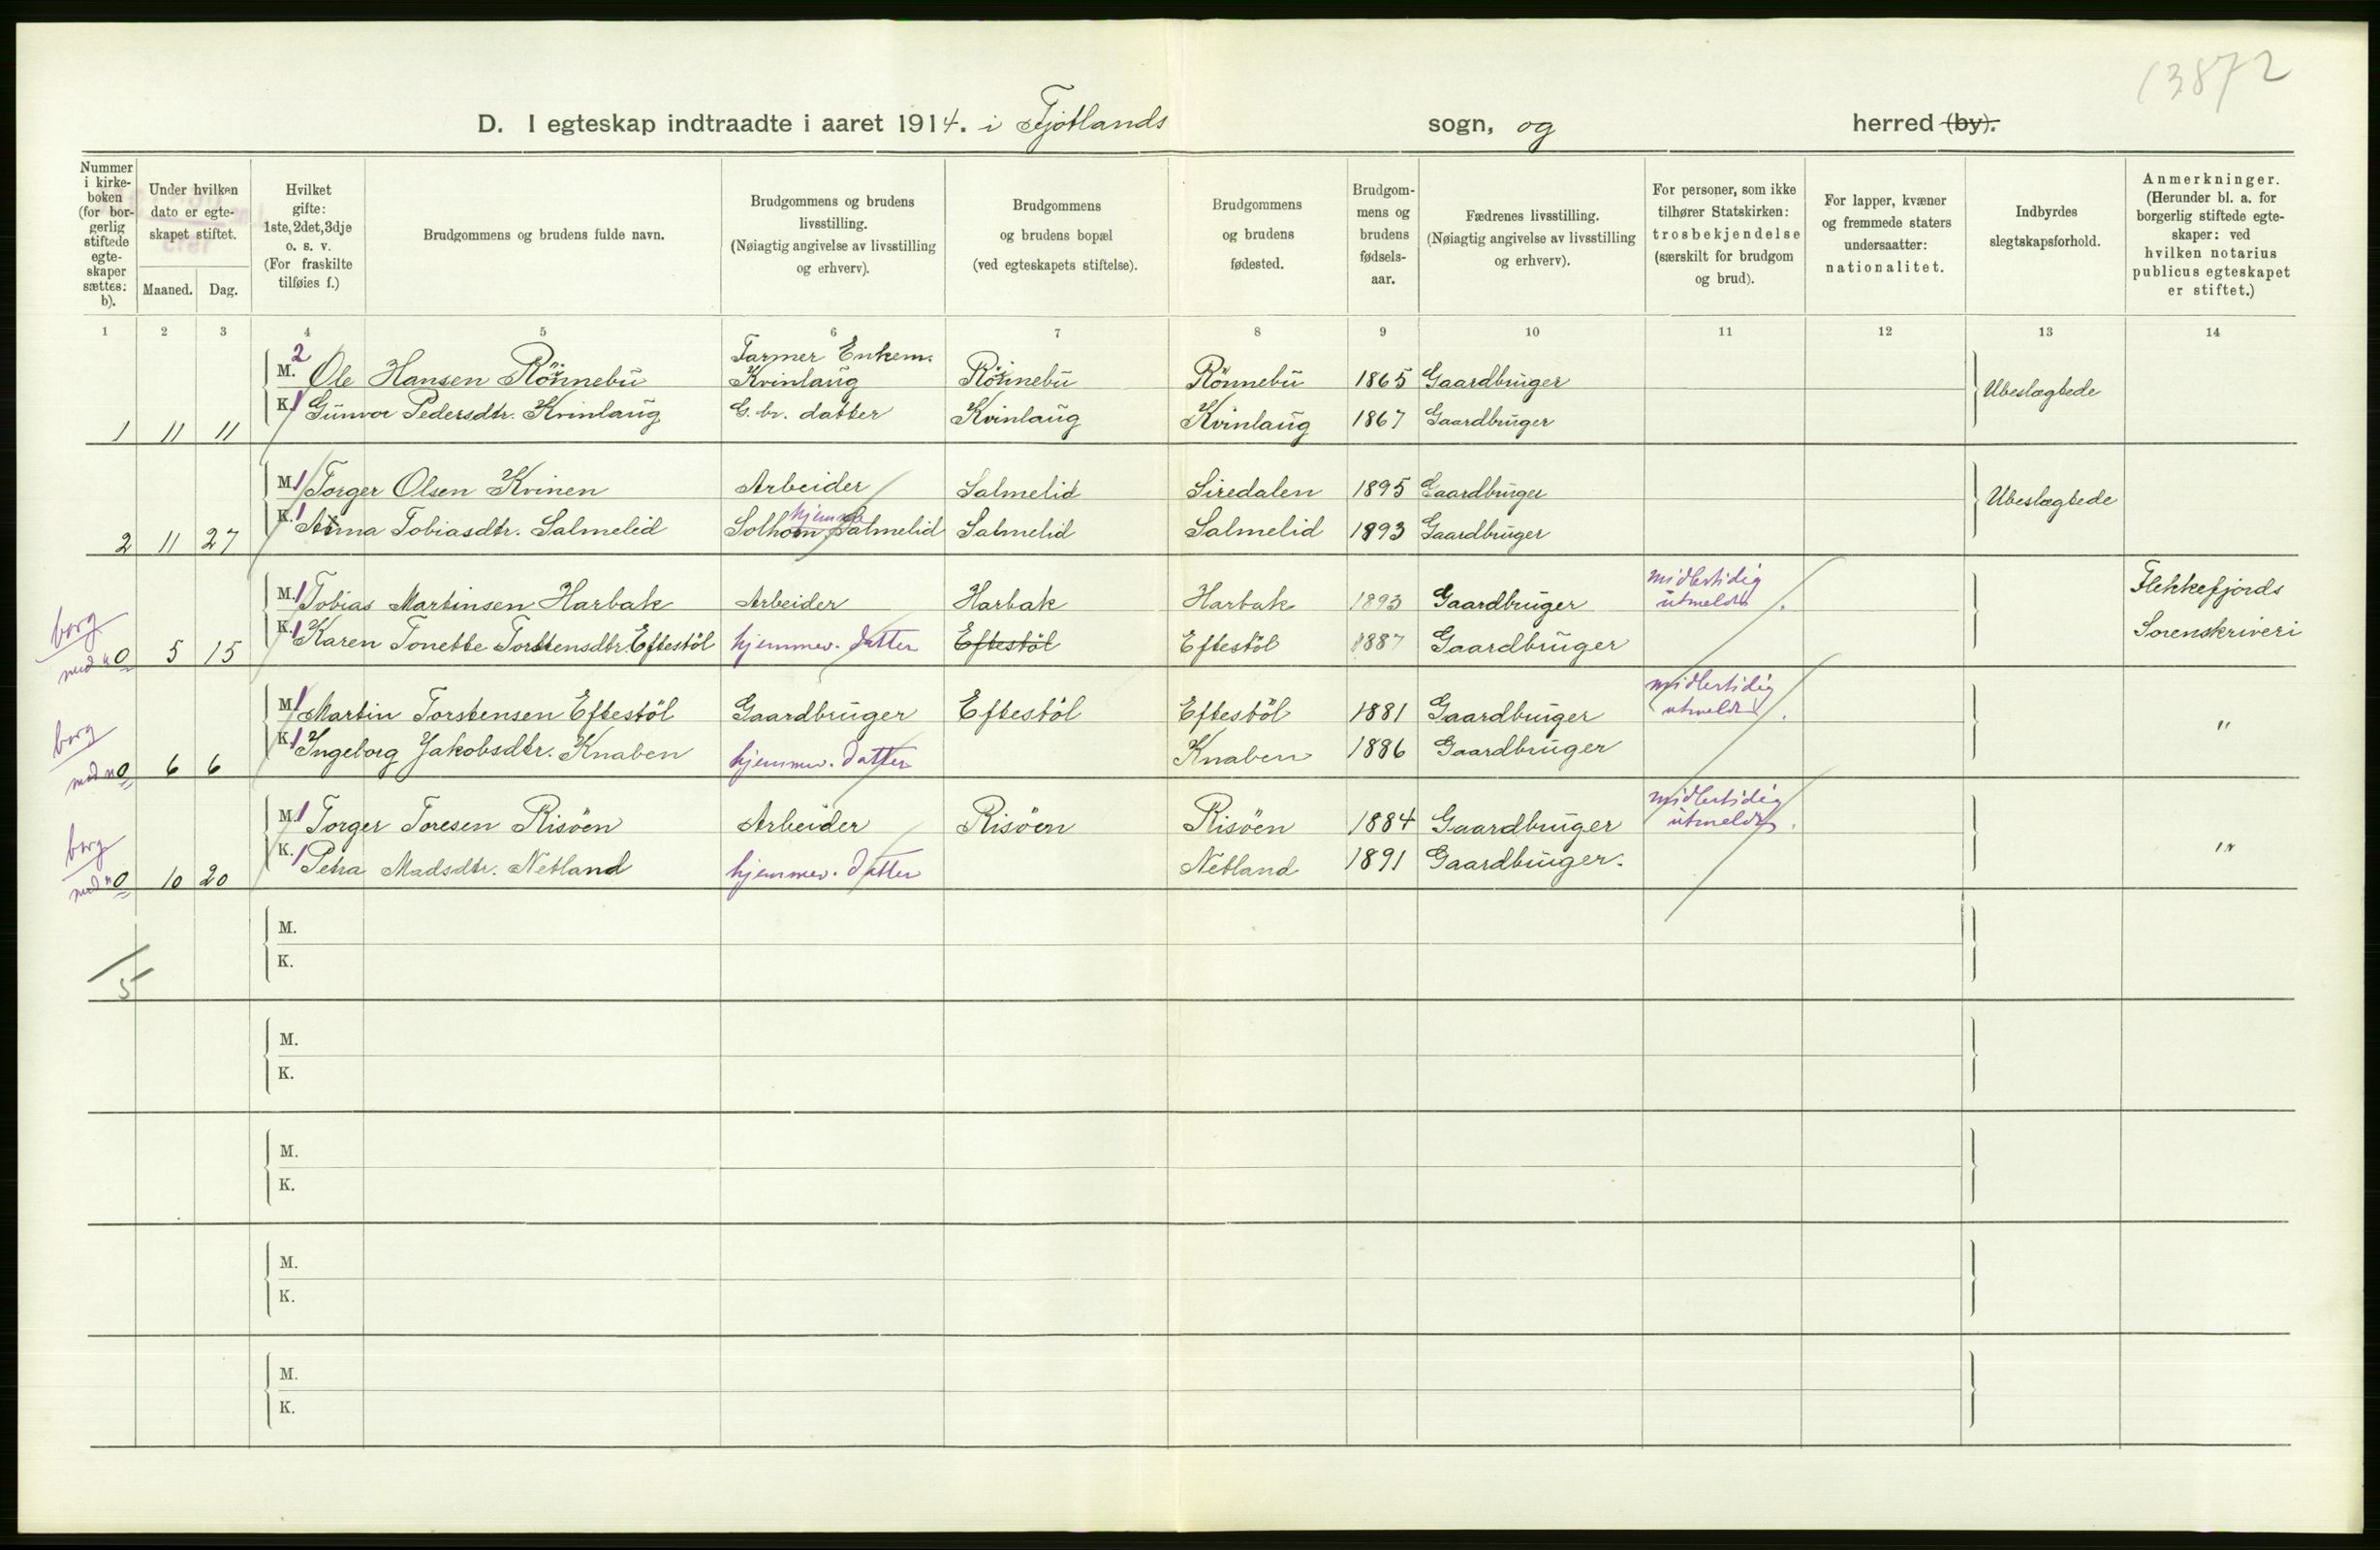 13872
D. I egteskap indtraadte i aaret 1914. i Fjotlands sogn, og herred (by).
Nummer i kirkeboken (for borgerlig stiftede egteskaper sættes: b).
Under hvilken dato er egteskapet stiftet.
Maaned. Dag.
Hvilket gifte: 1ste, 2det, 3dje o. s. v. (For fraskilte tilføies f.)
Brudgommens og brudens fulde navn.
Brudgommens og brudens livsstilling. (Nøiagtig angivelse av livsstilling og erhverv).
Brudgommens og brudens bopæl (ved egteskapets stiftelse).
Brudgommens og brudens fødested.
Brudgommens og brudens fødselsaar.
Fædrenes livsstilling. (Nøiagtig angivelse av livsstilling og erhverv).
For personer, som ikke tilhører Statskirken: trosbekjendelse (særskilt for brudgom og brud).
For lapper, kvæner og fremmede staters undersaatter: nationalitet.
Indbyrdes slegtskapsforhold.
Anmerkninger. (Herunder bl. a. for borgerlig stiftede egteskaper: ved hvilken notarius publicus egteskapet er stiftet.)
1 2 3 4 5 6 7 8 9 10 11 12 13 14
Farmer Enkem.
2 M. Ole Hansen Rönnebu Kvinlaug Rönnebu Rönnebu 1865 Gaardbruger Ubeslægtede
1 11 11 K. 1 Gunvor Pedersdtr. Kvinlaug G. br. datter Kvinlaug Kvinlaug 1867 Gaardbruger
M. 1 Torger Olsen Kvinen Arbeider Salmelid Siredalen 1895 Gaardbruger Ubeslægtede
hjemme
2 11 27 K. 1 Anna Tobiasdtr. Salmelid Solhom Salmelid Salmelid Salmelid 1893 Gaardbruger
borg M. 1 Tobias Martinsen Harbak Arbeider Harbak Harbak 1893 Gaardbruger midlertidig utmeldt. Flekkefjords
0 5 15 K. 1 Karen Tonette Torstensdtr Eftestöl hjemmev. datter Eftestöl Eftestöl 1887 Gaardbruger Sorenskriveri
borg M. 1 Martin Torstensen Eftestöl Gaardbruger Eftestöl Eftestöl 1881 Gaardbruger midlertidig utmeldt. "
0 6 6 K. 1 Ingeborg Jakobsdtr. Knaben hjemmev. datter Knaben 1886 Gaardbruger
borg M. 1 Torger Toresen Risöen Arbeider Risöen Risöen 1884 Gaardbruger midlertidig utmeldt. "
0 10 20 K. 1 Petra Madsdtr. Netland hjemmev. datter Netland 1891 Gaardbruger.
M.
K.
5
M.
K.
M.
K.
M.
K.
M.
K.